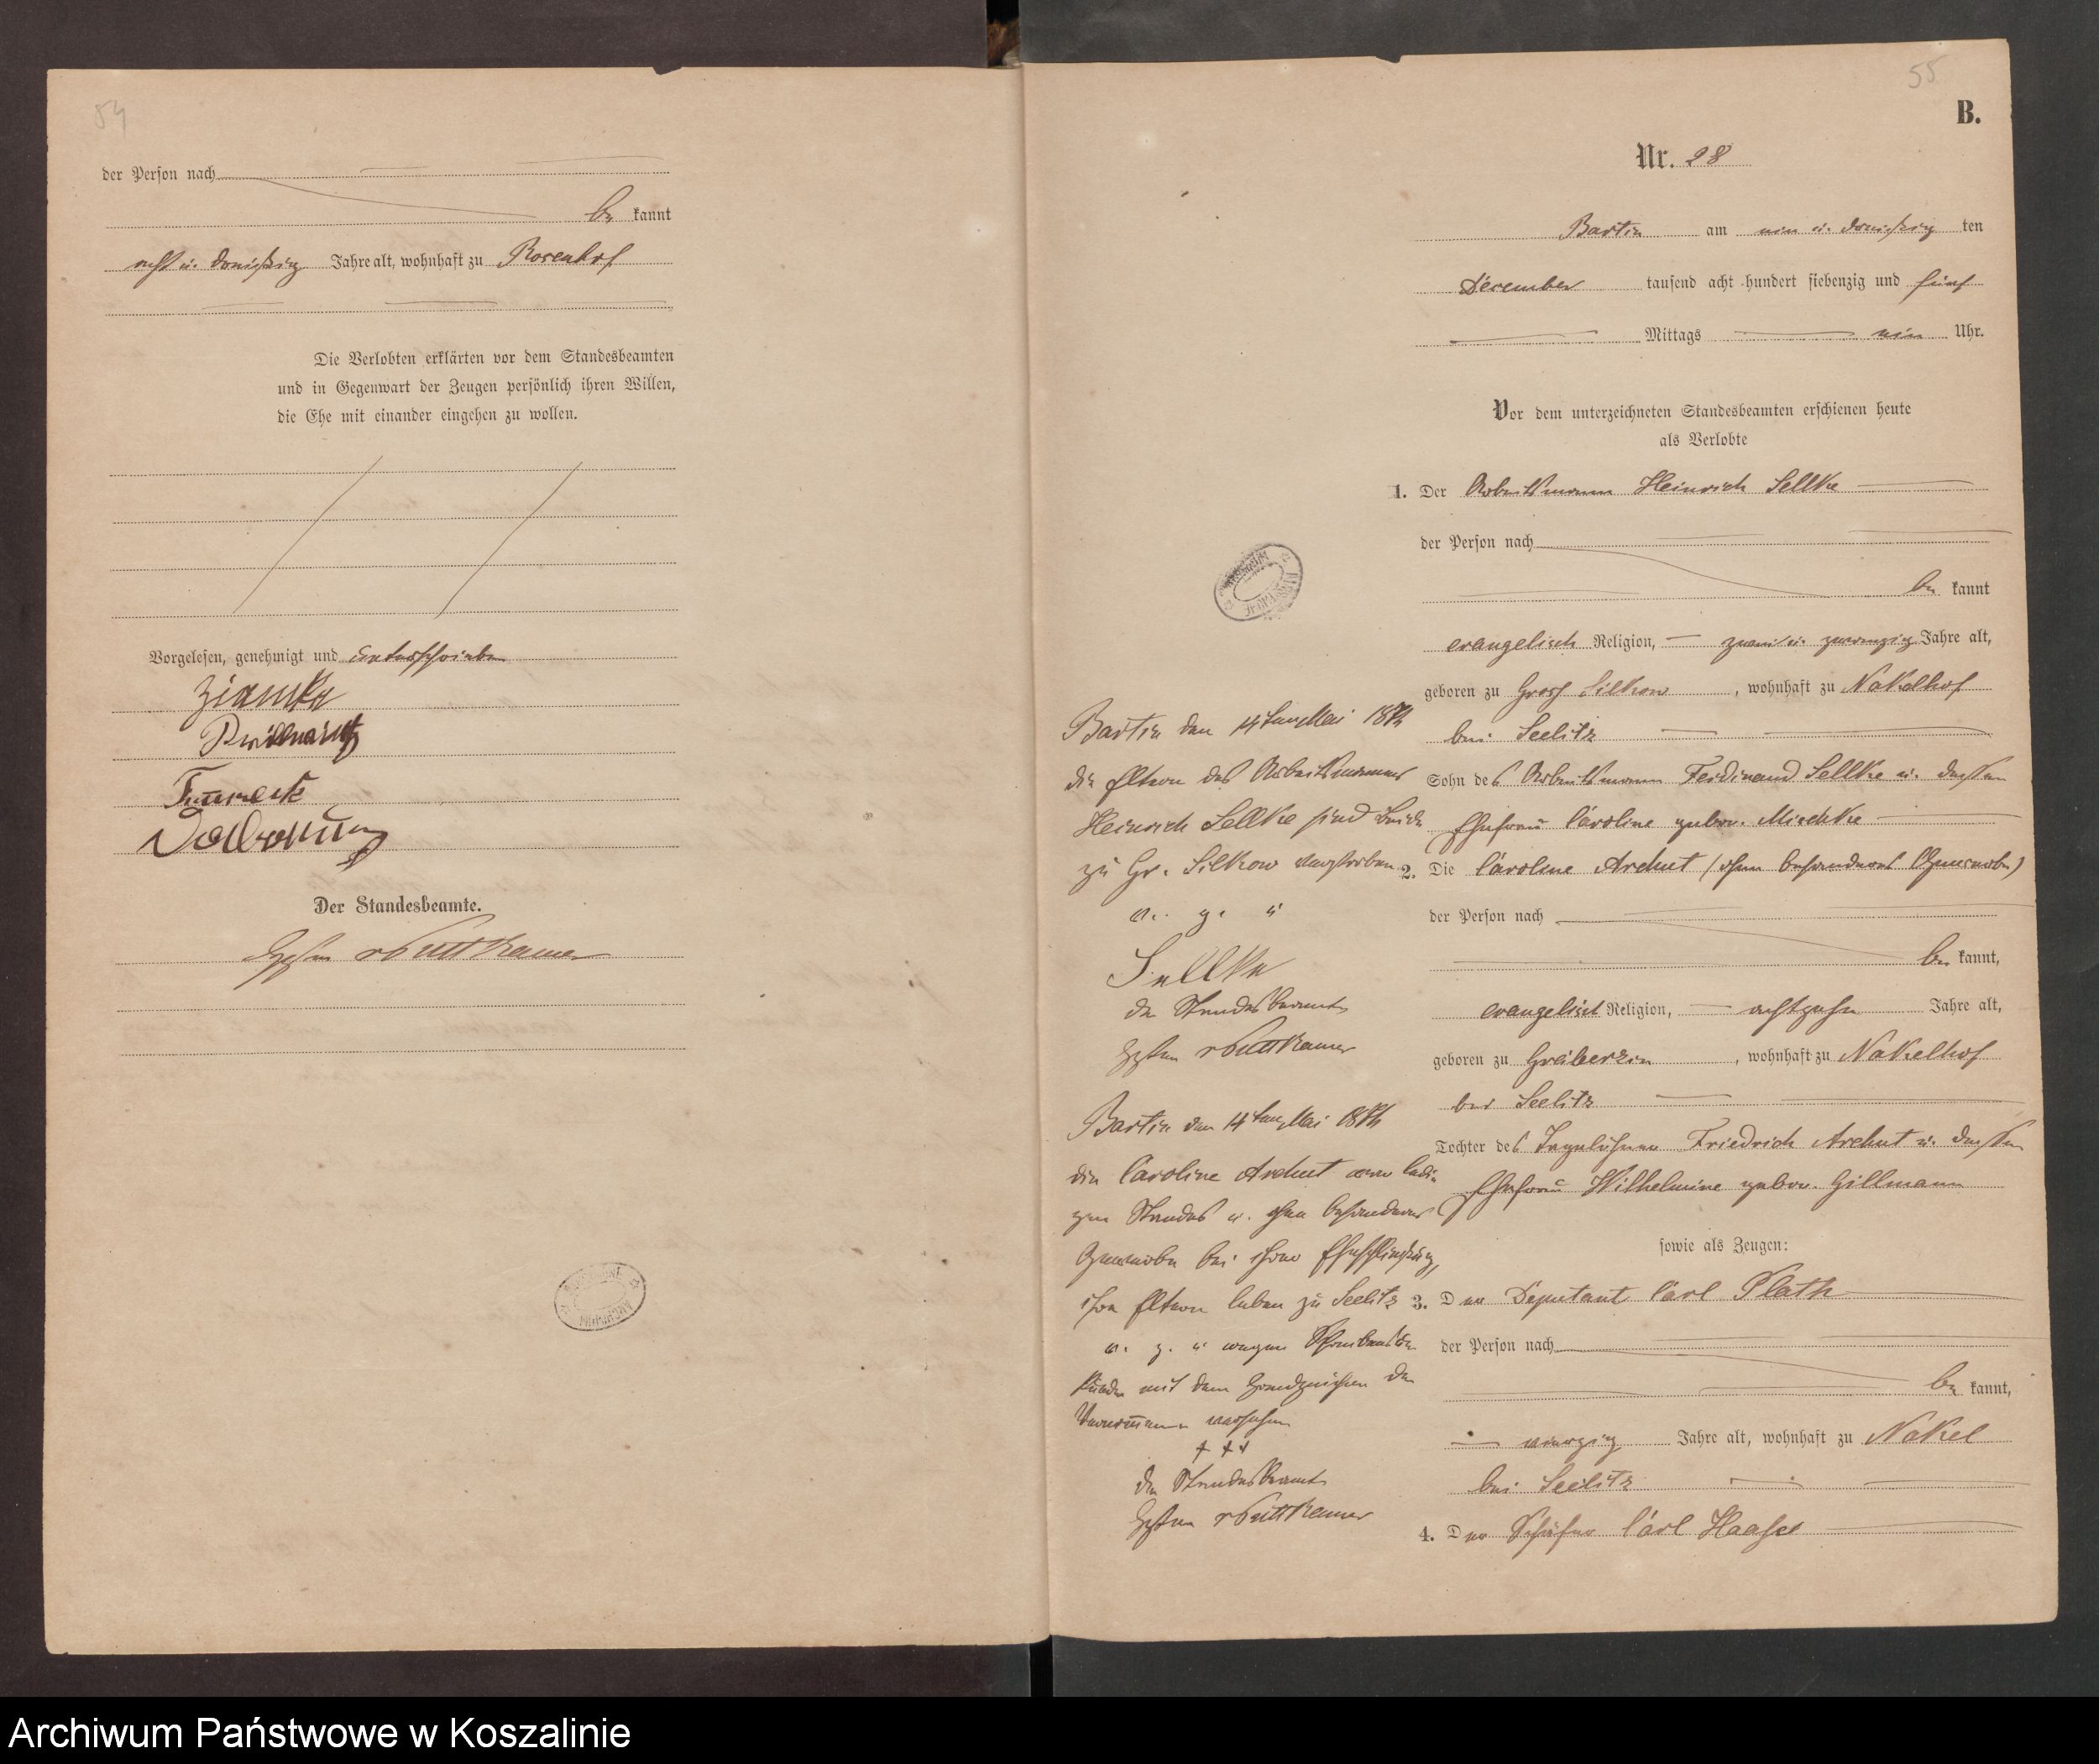 54
der Person nach
be kannt
acht u. dreißig Jahre alt, wohnhaft zu Rosenhof
Die Verlobten erklärten vor dem Standesbeamten
und in Gegenwart der Zeugen persönlich ihren Willen,
die Ehe mit einander eingehen zu wollen.
Vorgelesen, genehmigt und unterschrieben
Der Standesbeamte.
vPuttkamer
55
B.
Nr. 28
Bartin am ein u. dreißig ten
December tausend acht hundert siebenzig und fünf
Mittags ein Uhr.
Vor dem unterzeichneten Standesbeamten erschienen heute
als Verlobte
1. Der Arbeitsmann Heinrich Sellke
der Person nach
be kannt
evangelisch Religion, zwei u. zwanzig Jahre alt,
geboren zu Gross Silkow, wohnhaft zu Nakelhof
bei Seelitz
Sohn des Arbeitsmann Ferdinand Sellke u. dessen
Ehefrau Caroline gebor. Mischke
2. Die Caroline Archut (ohne besonderes Gewerbe)
der Person nach
be kannt,
evangelisch Religion, achtzehn Jahre alt,
geboren zu wohnhaft zu Nakelhof
bei Seelitz
Tochter des Tagelöhner Friedrich Archut u. dessen
Ehefrau Wilhelmine gebor. Gillmann
sowie als Zeugen:
3. Der Deputant Carl Plath
der Person nach
be kannt,
vierzig Jahre alt, wohnhaft zu Nakel
bei Seelitz
4. Der Schäfer Carl Haase
Bartin den 14 ten Mai
die Eltern des Arbeitsmannes
Heinrich Sellke sind beide
zu Gr. Silkow verstorben
v. g. u
Sellke
der Standesbeamte
vPuttkamer
Bartin den 14 ten Mai
die Caroline Archut war ledi-
gen Standes u. ohne besonderes
Gewerbe bei ihrer Eheschließung,
ihre Eltern leben zu Seelitz
v. g. u wegen Schreibens
mit dem Handzeichen der
versehen
+ + +
der Standesbeamte
vPuttkamer
Archiwum Państwowe w Koszalinie